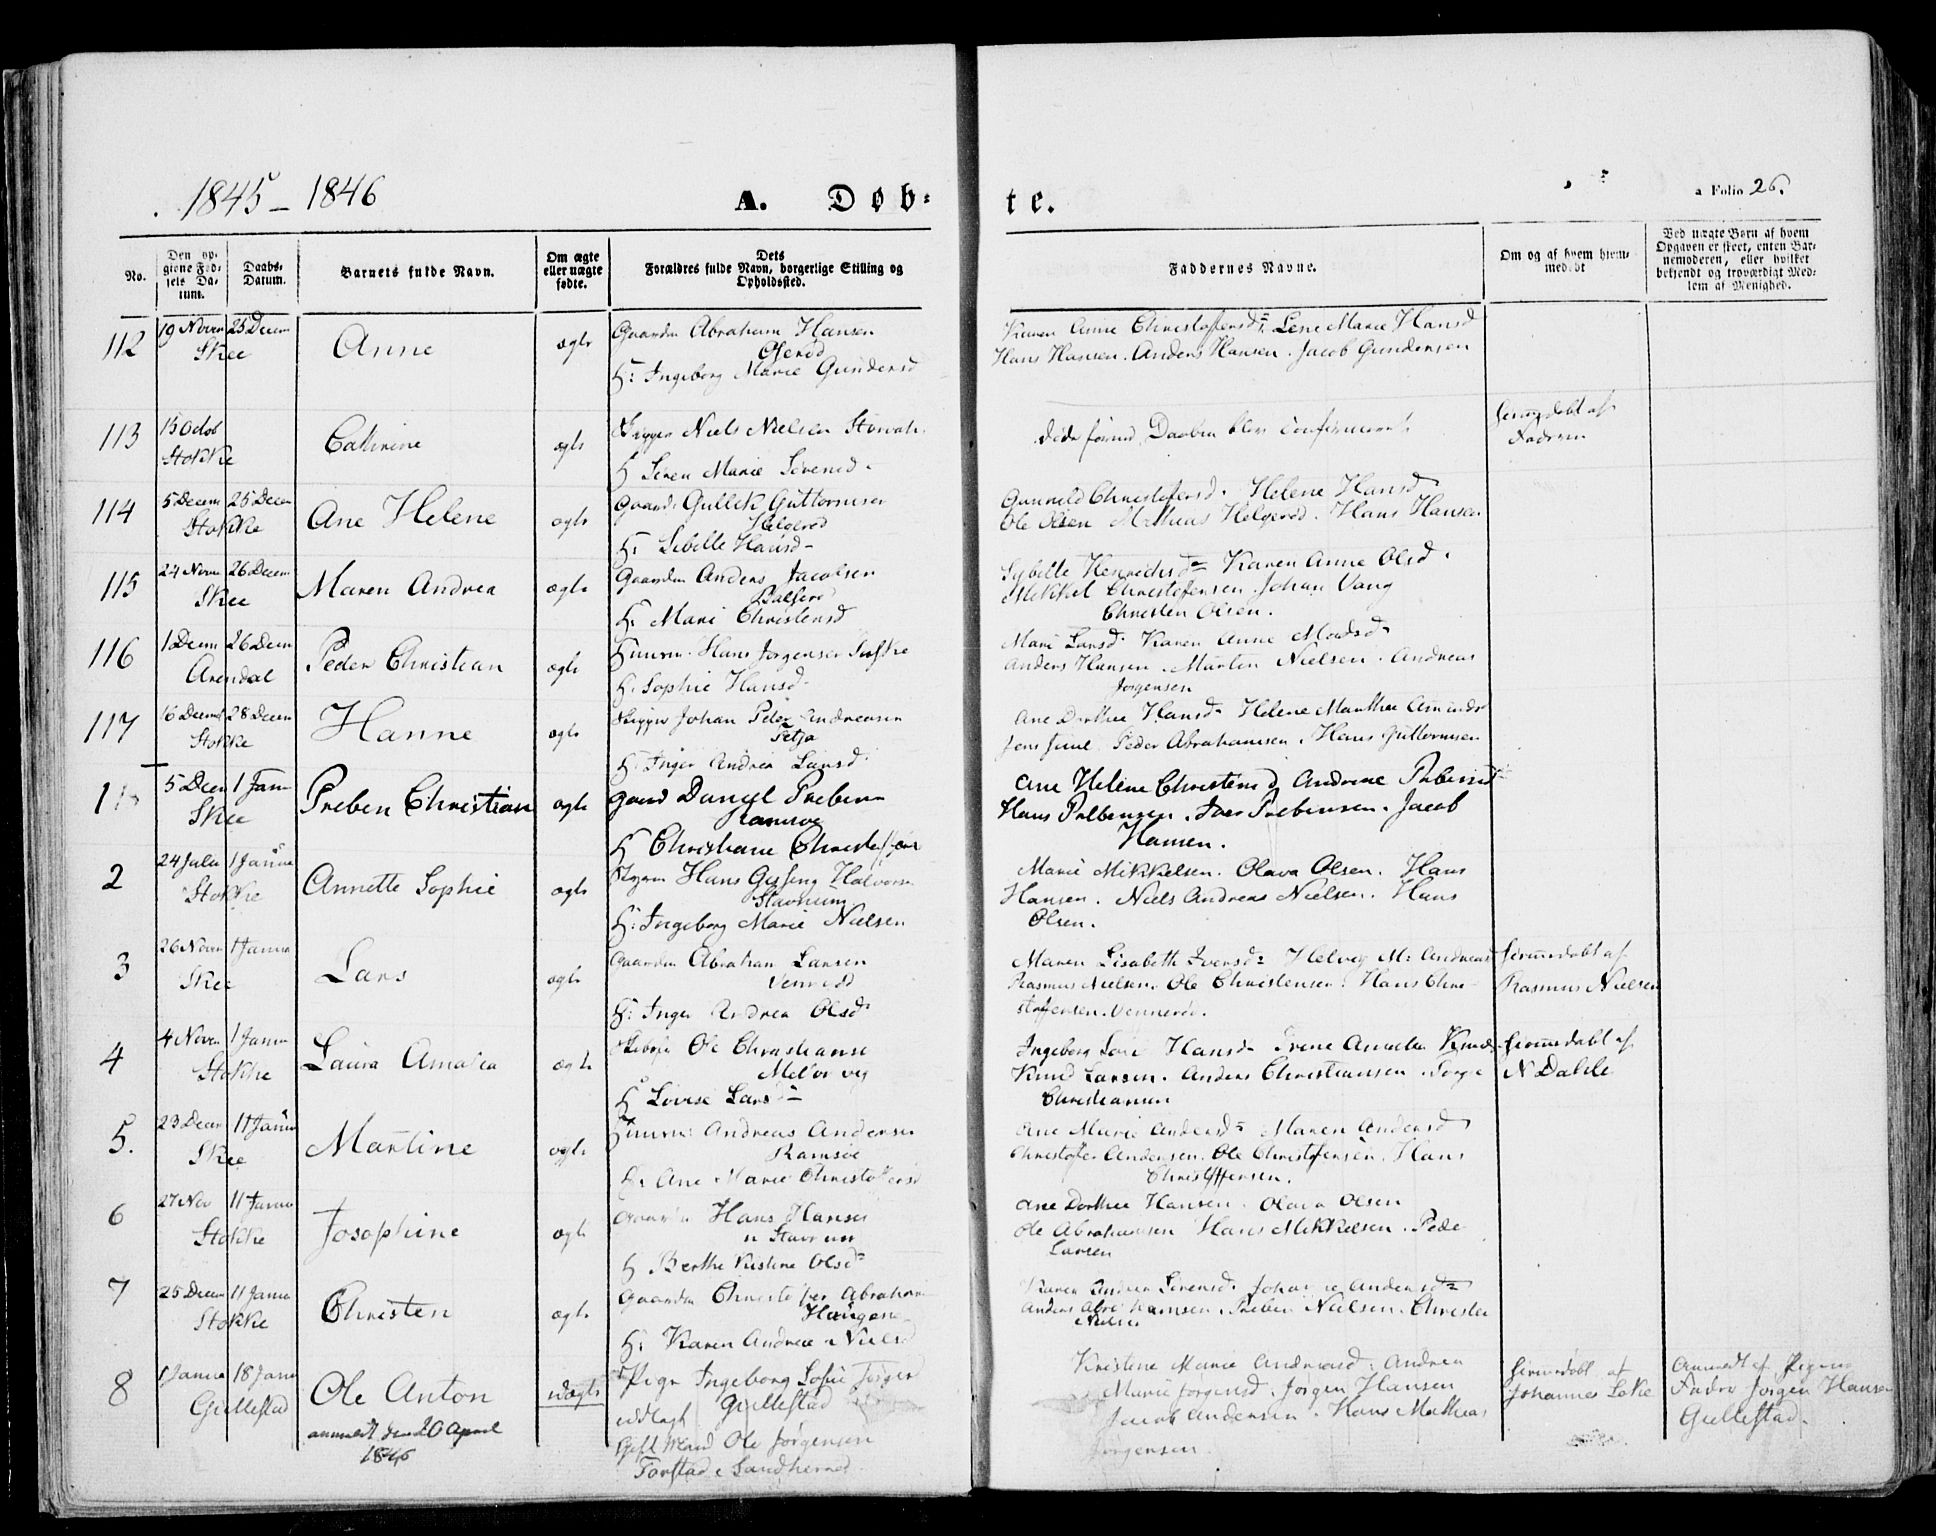 1845 - 1846
A. Døb-
te.
a Folio 26.
No.
Den op-
givne Fød-
sels Da-
tum.
Daabs-
Datum.
Barnets fulde Navn.
Om ægte
eller uægte
fødte.
Dets
Forældres fulde Navn, borgerlige Stilling og
Opholdssted.
Faddernes Navne.
Om og af hvem hjem-
medøbt
Ved uægte Børn af hvem
Opgaven er skeet, enten Bar-
nemoderen, eller hvilket
bekjendt og troværdigt Med-
lem af Menighed.
112
19 Novem 25 Decem
Skee
Anne
ægte
Gaardm Abraham Hansen
H: Ingeborg Marie Gundersd
Karen Anne Christoffersd: Lene Marie Hansd
Hans Hansen. Anders Hansen. Jacob Gundersen
113
15 Octob
Stokke
Cathrine
ægte
Niels Nielsen
H Seren Marie Sørensd.
døde førend Daaben blev Confirmeret
hiemmedøbt af
Faderen
114
5 Decem 25 Decem
Stokke
Ane Helene
ægte
Gaard: Gullek Guttormsen
Helgerød
H: Sibille Hansd-
Gunnild Christofersd. Helene Hansd
Ole Olsen Mathias Helgerød. Hans Hansen
115
24 Novem 26 Decem
Skee
Maren Andrea
ægte
Gaardm Anders Jacobsen
H. Mari Christensd
Sybille Henrichsd= Karen Anne Olsd.
Mikkel Christofersen. Johan Vang
Christen Olsen.
116
1 Decem 26 Decem
Arendal
Peder Christian
ægte
Huusm. Hans Jorgensen
H. Sophie Hansd.
Mari Larsd. Karen Anne Madsd
Anders Hansen. Martin Nielsen. Andreas
Jorgensen
117
16 Decemb 28 Decem
Stokke
Hanne
ægte
Johan Peter Andreasen
H. Inger Andrea Larsd.
Ane Dorthea Hansd. Helene Marthea
Jens Juul Peder Abrahamsen. Hans Guttormsen
1
5 Decem 1 Janu
Skee
Preben Christian
ægte
Gaard Daniel Preben
Ramsøe
H Christiane
Ane Helene Christensd Andrine Prebensd
Hans Prebensen. Iver Prebensen. Jacob
Hansen.
2
24 Julii 1 Janua
Stokke
Annette Sophie
ægte
Hans Halvorsen
Stavnum
H: Ingeborg Marie Nielsen
Marie Mikkelsen. Olava Olsen. Hans
Hansen. Niels Andreas Nielsen. Hans
Olsen.
3
26 Novem 1 Janua
Skee
Lars
ægte
Gaardm Abraham Larsen
H: Inger Andrea Olsd
Maren Lisabeth Iversd= Helvig M: Andreasd
Rasmus Nielsen. Ole Christensen. Hans Chri-
stoffersen. Vennerød.
hiemmedøbt af
Rasmus Nielsen
4
4 Novem 1 Janu
Stokke
Laura Amalia
ægte
Ole Christianse
H Lovise Larsd=
Ingeborg Sofie Hansd Irene Amalia Knuds
Knud Larsen. Anders Christiansen.
Christiansen
hiemmedøbt af
N Dahle
5.
23 Decem 11 Janua
Skee
Martine
ægte
Huusm: Andreas Andersen
Ramsøe
H. Ane Marie Christoffersd
Ane Marie Andersd= Maren Andersd
Christofer Andersen. Ole Christofersen. Hans
Christoffersen.
6
27 Nov 11 Janua
Stokke
Josephine
ægte
Hans Hansen
H Berthe Kistine Olsd=
Ane Dorthea Hansen. Olava Olsen
Ole Abrahamsen Hans Mikkelsen. Peder
Larsen
7
25 Decem 11 Janua
Stokke
Christen
ægte
Gaardm Christoffer Abraham
Haugene
H: Karen Andrea Nielsd
Karen Andrea Sørensd. Andersd=
Anders Abrahamsen. Preben Nielsen. Christen
Nielsen
8
1 Janua 18 Janu
Gullestad
Ole Anton
anmeldt den 20 April
1846
uægte
Pige Ingeborg Sofie Jørgensd
Gullestad
udlagt
Gift Mand Ole Jørgensen
Forstad i Sandherred
Kristine Marie Andreasd. Andrea
Marie Jørgensd. Jørgen Hansen
Jacob Andersen. Hans Mathias
Jørgensen
hiemmedøbt af
Johannes Leke
Anmeldt af Pigens
Fader Jørgen Hansen
Gullestad.